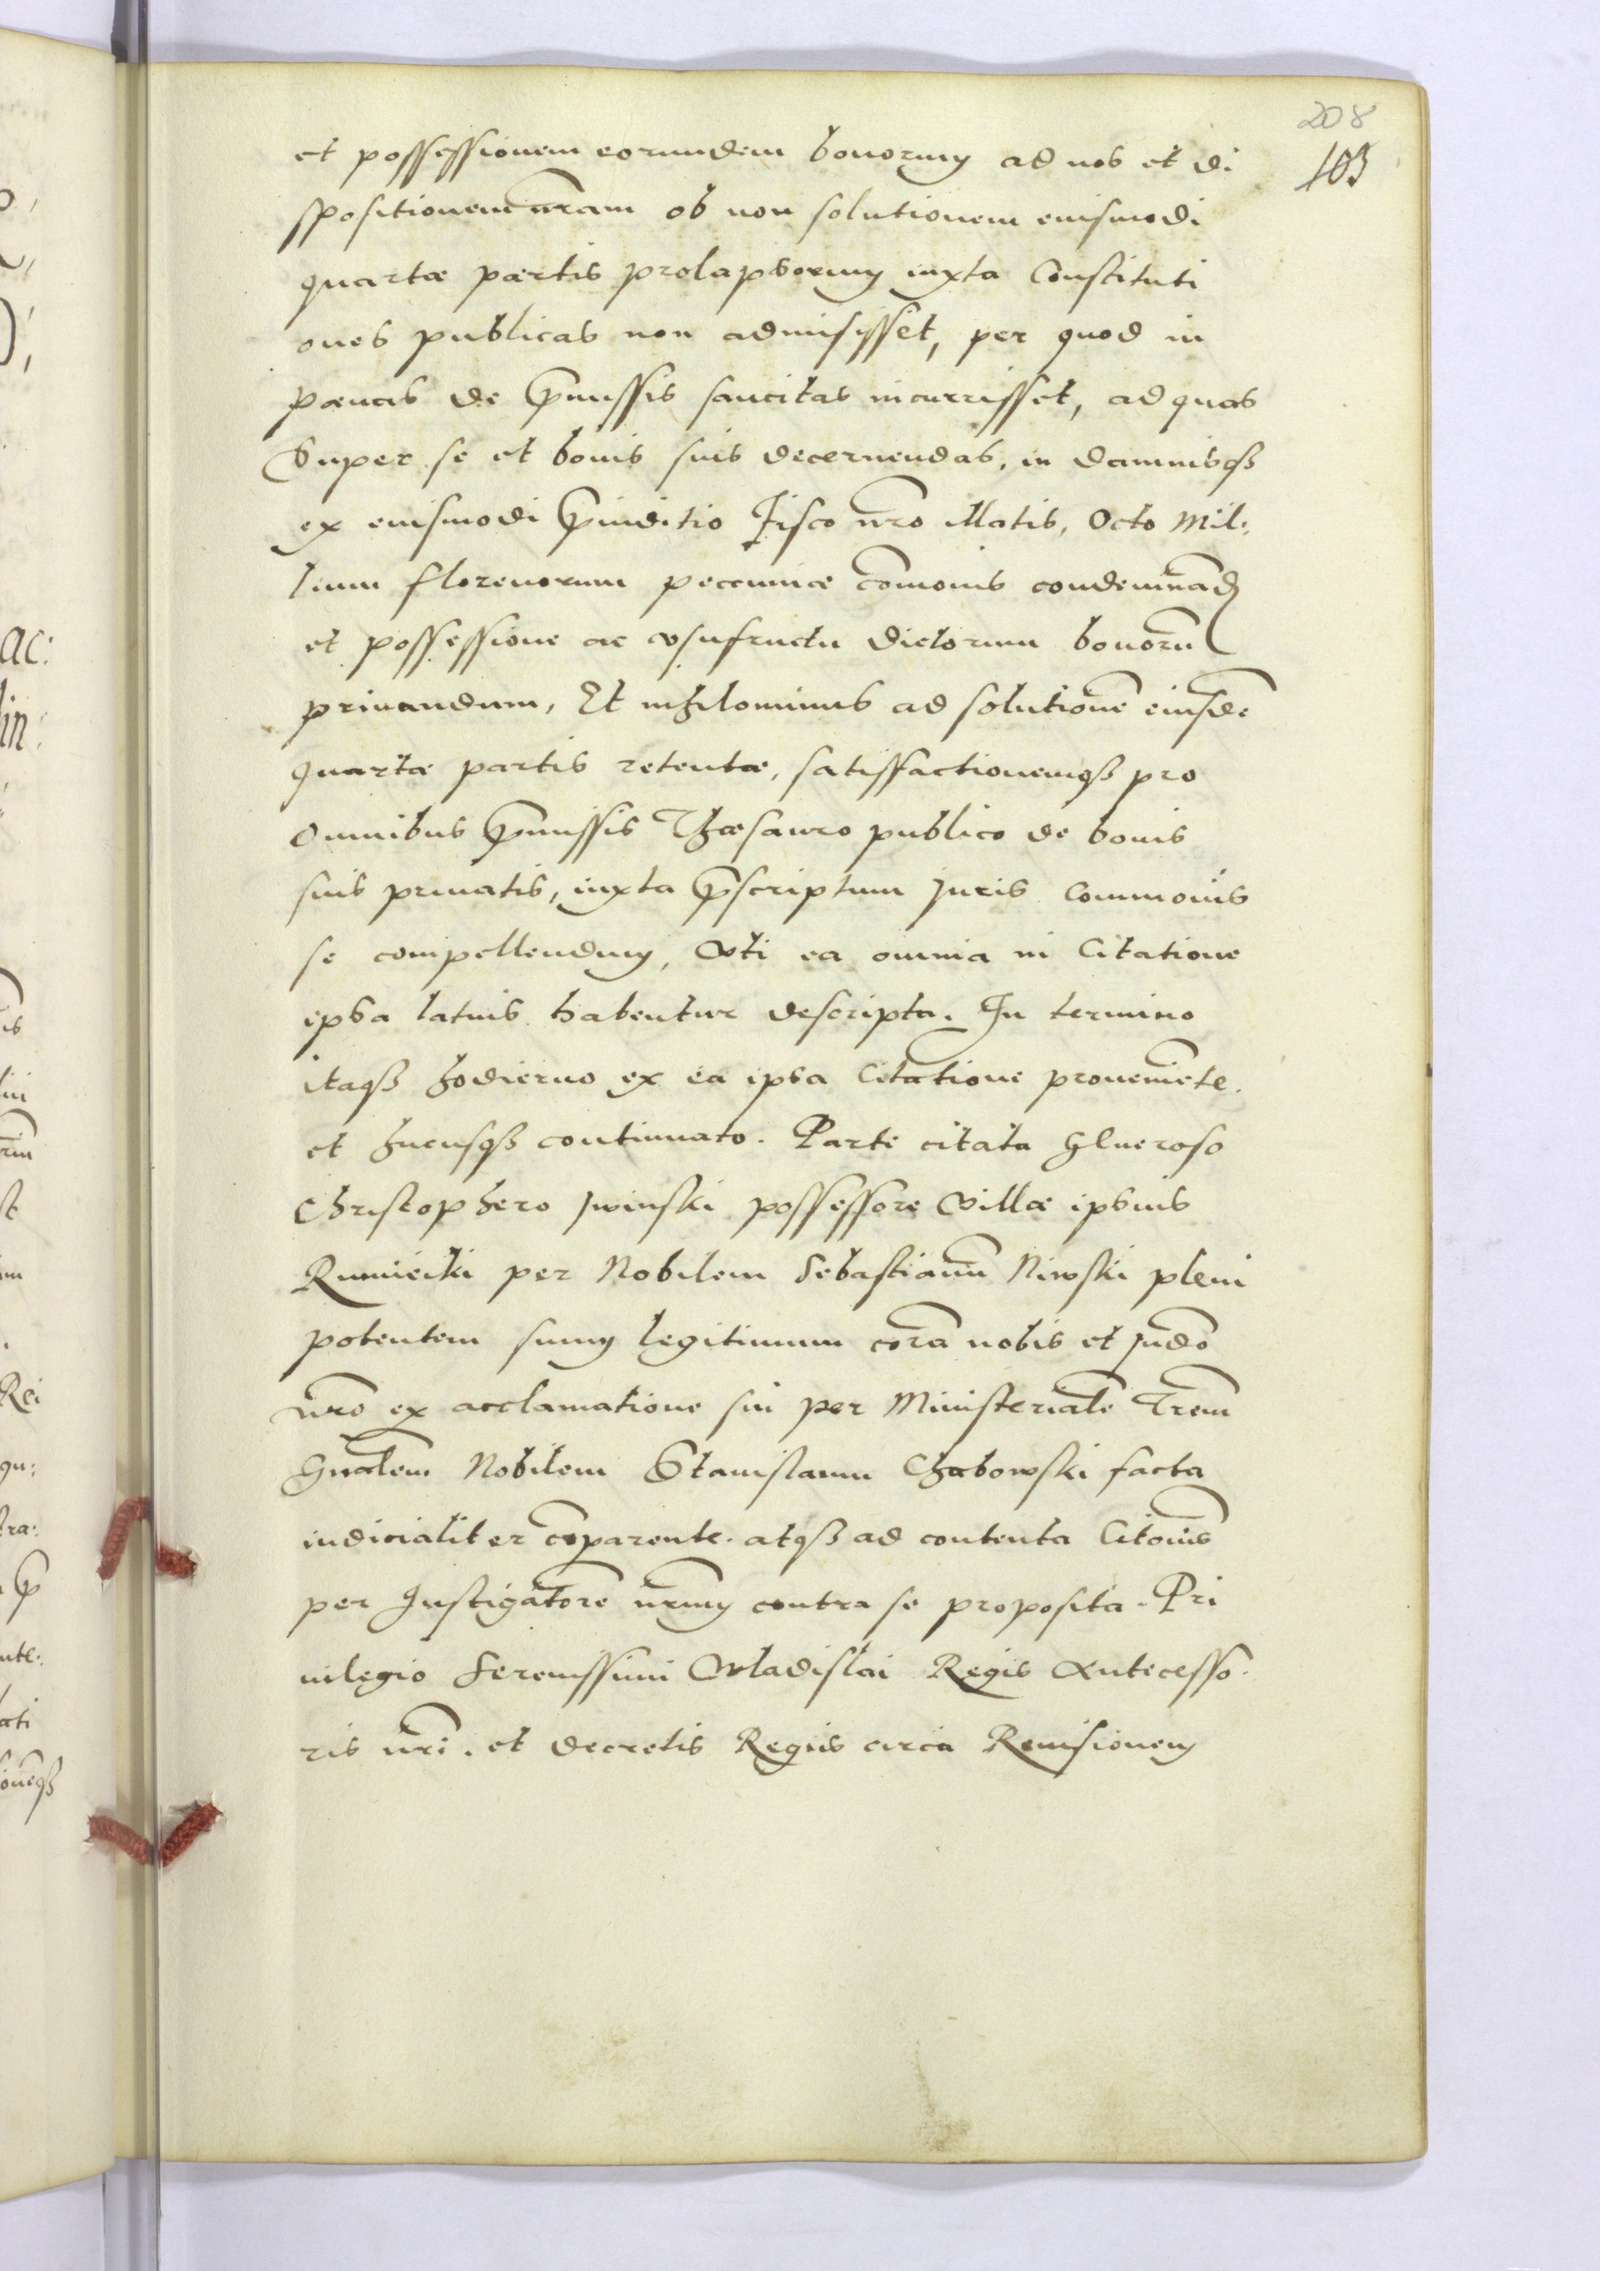 208
103
et possessionem eorundem bonorum ad nos et di
spositionem nram ob non solutionem eiusmodi
quartæ partis prolapsorum iuxta Constituti
ones publicas non admisisset, per quod in
pœnas de pmissis sancitas incurrisset, ad quas
Super se et bonis suis decernendas, in damnisq3
ex eiusmodi piuditio Fisco nro illatis, Octo Mil:
lium florenorum pecuniæ comonis condemnad
et possessione ac vsufructu dictorum bonoru
priuandum, Et nihilominus ad solutione eiusde
quartæ partis retentæ, satisfactionemq3 pro
Omnibus pmissis Thæsauro publico de bonis
suis priuatis, iuxta pscriptum Juris Commonis
se compellendum, Vti ea omnia in Citatione
ipsa latius habentur descripta. In termino
itaq3 hodierno ex ea ipsa Citatione proueniete.
et hucusq3 continuato. Parte citata Glneroso
Christophero Jwinski possessore Villæ ipsius
Rumieiki per Nobilem Sebastianu Niwski pleni
potentem suum legitimum cora nobis et Judo
nro ex acclamatione sui per Ministeriale Trem
Gnalem Nobilem Stanislaum Chabowski facta
iudicialiter coparente. atq3 ad contenta Citonis
per Instigatore nrum contra se proposita. Pri
uilegio Serenissimi Vladislai Regis Antecesso.
ris nri. et decretis Regiis circa Reuisionem
ac:
lin:
Rei
qu: